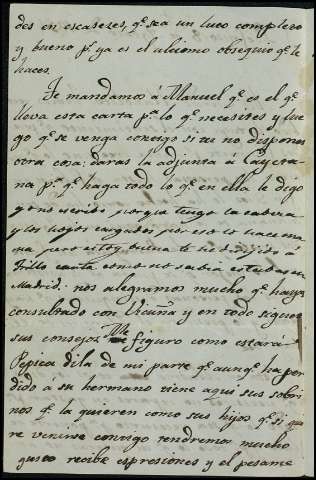 des en escaseses, qe. sea un luto completo
y bueno pr. ya es el ultimo obsequio qe. le
haces.
Te mandamos á Manuel qe. es el qe.
lleva esta carta pa. lo qe. necesites y lue
go qe. se venga contigo si tu no dispones
otra cosa; daras la adjunta á Cayeta-
na pa. qe. haga todo lo qe. en ella le digo
y no escribo porque tengo la cabeza
y los hojos cargados por eso lo hace ma
na pero estoy buena te he dirijido á
Trillo carta como no sabia estabas en
Madrid. nos alegramos mucho qe. hayas
consultado con Vicuña y en todo sigue
sus consejos. Me figuro como estará
Pepica dila de mi parte qe. aunqe. ha per
dido á su hermano tiene aqui sus sobri
nos qe. la quieren como sus hijos qe. si quie
re venirse contigo tendremos mucho
gusto recibe espresiones y el pesame